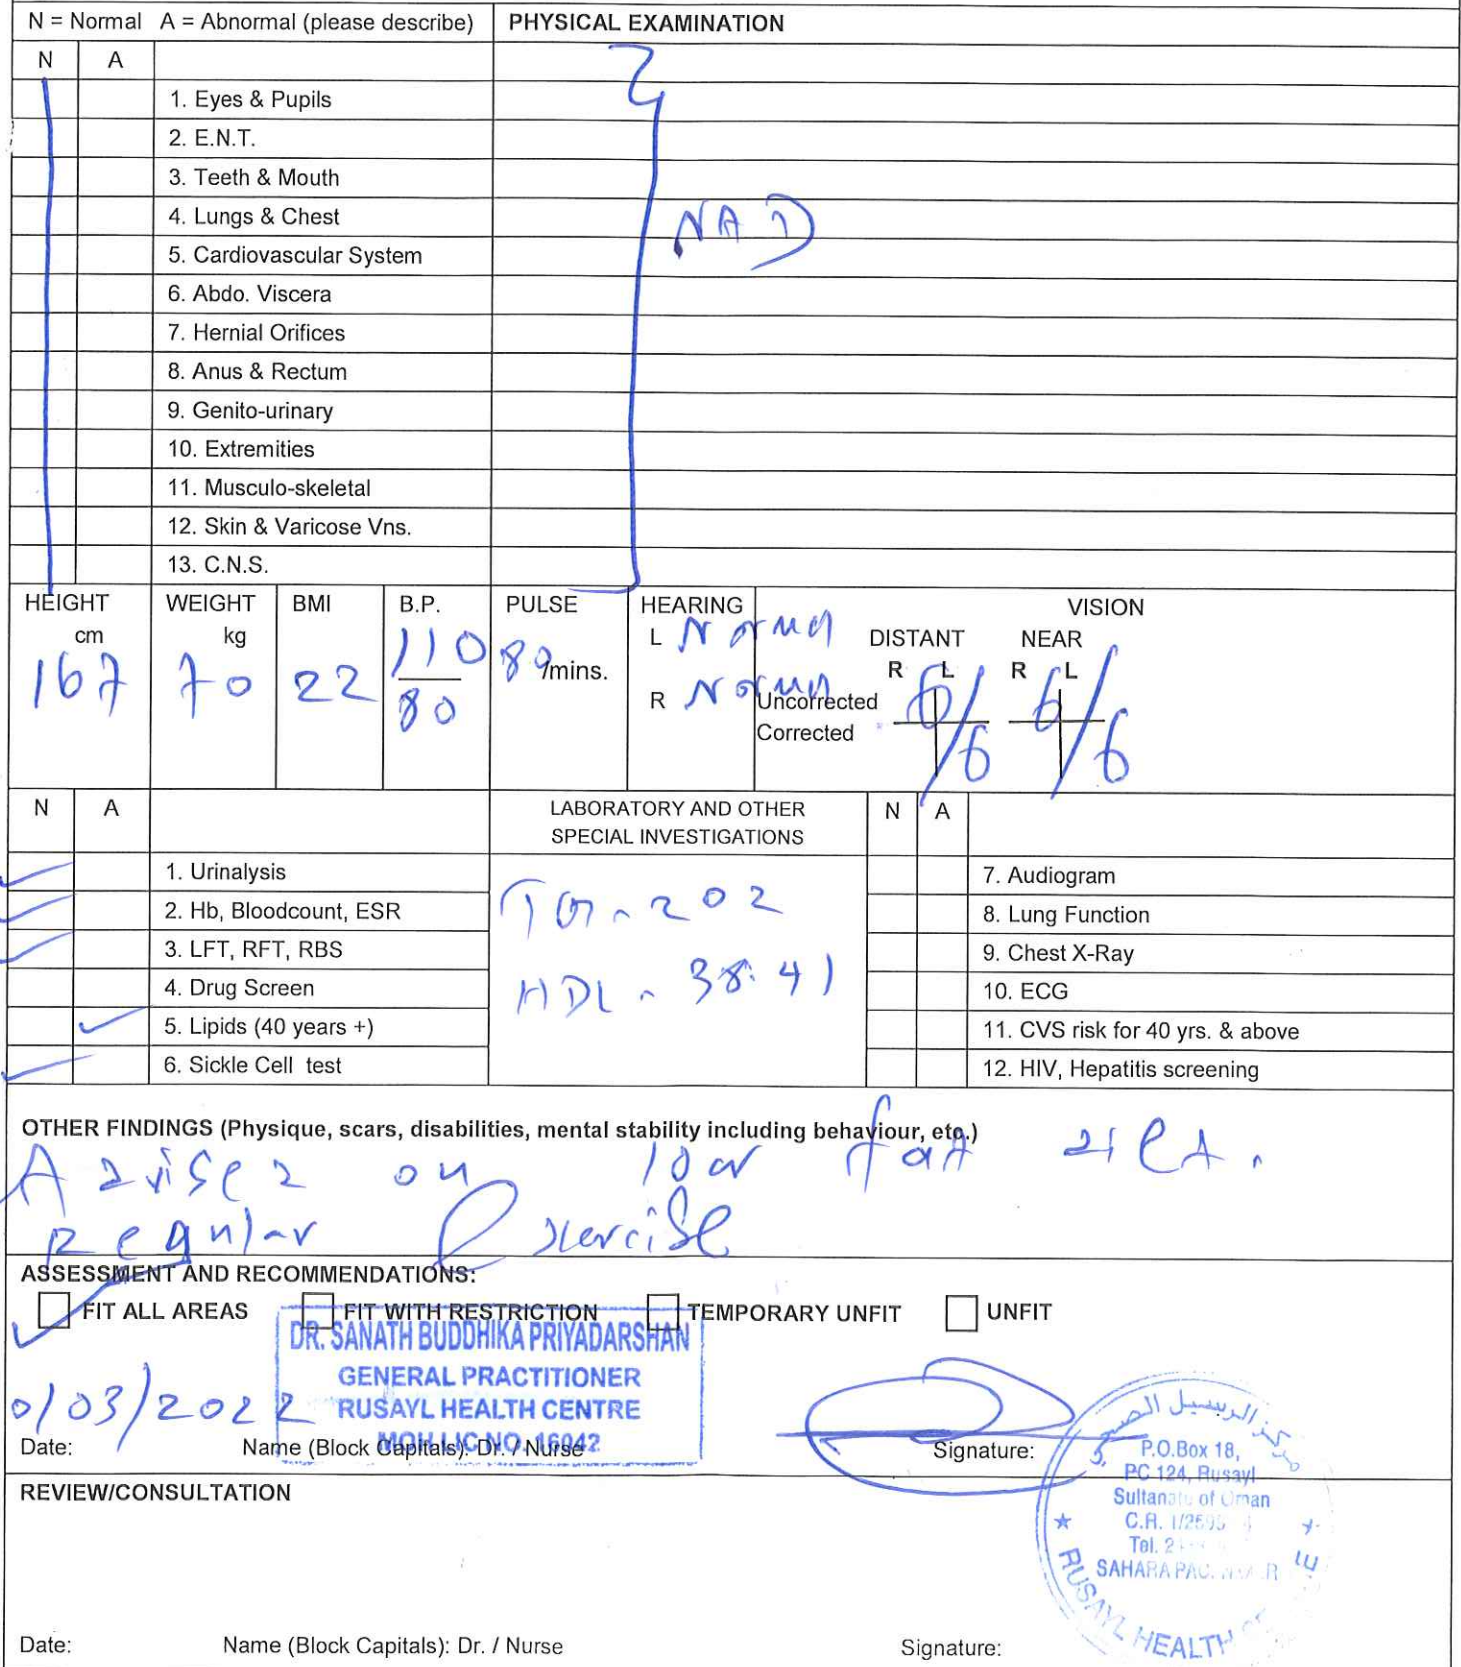 N = Normal A = Abnormal (please describe) PHYSICAL EXAMINATION
N A
1. Eyes & Pupils
2. E.N.T.
3. Teeth & Mouth
4. Lungs & Chest
NAD
5. Cardiovascular System
6. Abdo. Viscera
7. Hernial Orifices
8. Anus & Rectum
9. Genito-urinary
10. Extremities
11. Musculo-skeletal
12. Skin & Varicose Vns.
13. C.N.S.
HEIGHT WEIGHT BMI B.P. PULSE HEARING VISION
cm kg L Normal DISTANT NEAR
167 70 22 110/80 80/mins. R L R L
R Normal Uncorrected 6/6 6/6
Corrected
N A LABORATORY AND OTHER N A
SPECIAL INVESTIGATIONS
1. Urinalysis 7. Audiogram
2. Hb, Bloodcount, ESR - 202 8. Lung Function
3. LFT, RFT, RBS 9. Chest X-Ray
4. Drug Screen HDL - 38.41 10. ECG
5. Lipids (40 years +) 11. CVS risk for 40 yrs. & above
6. Sickle Cell test 12. HIV, Hepatitis screening
OTHER FINDINGS (Physique, scars, disabilities, mental stability including behaviour, etc.)
Advised on low fat diet.
Regular Exercise
ASSESSMENT AND RECOMMENDATIONS:
FIT ALL AREAS FIT WITH RESTRICTION TEMPORARY UNFIT UNFIT
DR. SANATH BUDDHIKA PRIYADARSHAN
GENERAL PRACTITIONER
RUSAYL HEALTH CENTRE
MOH LIC NO. 16042
0/03/2022
Date: Name (Block Capitals): Dr. / Nurse Signature:
مركز الرسيل
P.O.Box 18,
PC 124, Rusayl
Sultanate of Oman
C.R.
Tel.
SAHARA
RUSAYL HEALTH
REVIEW/CONSULTATION
Date: Name (Block Capitals): Dr. / Nurse Signature: